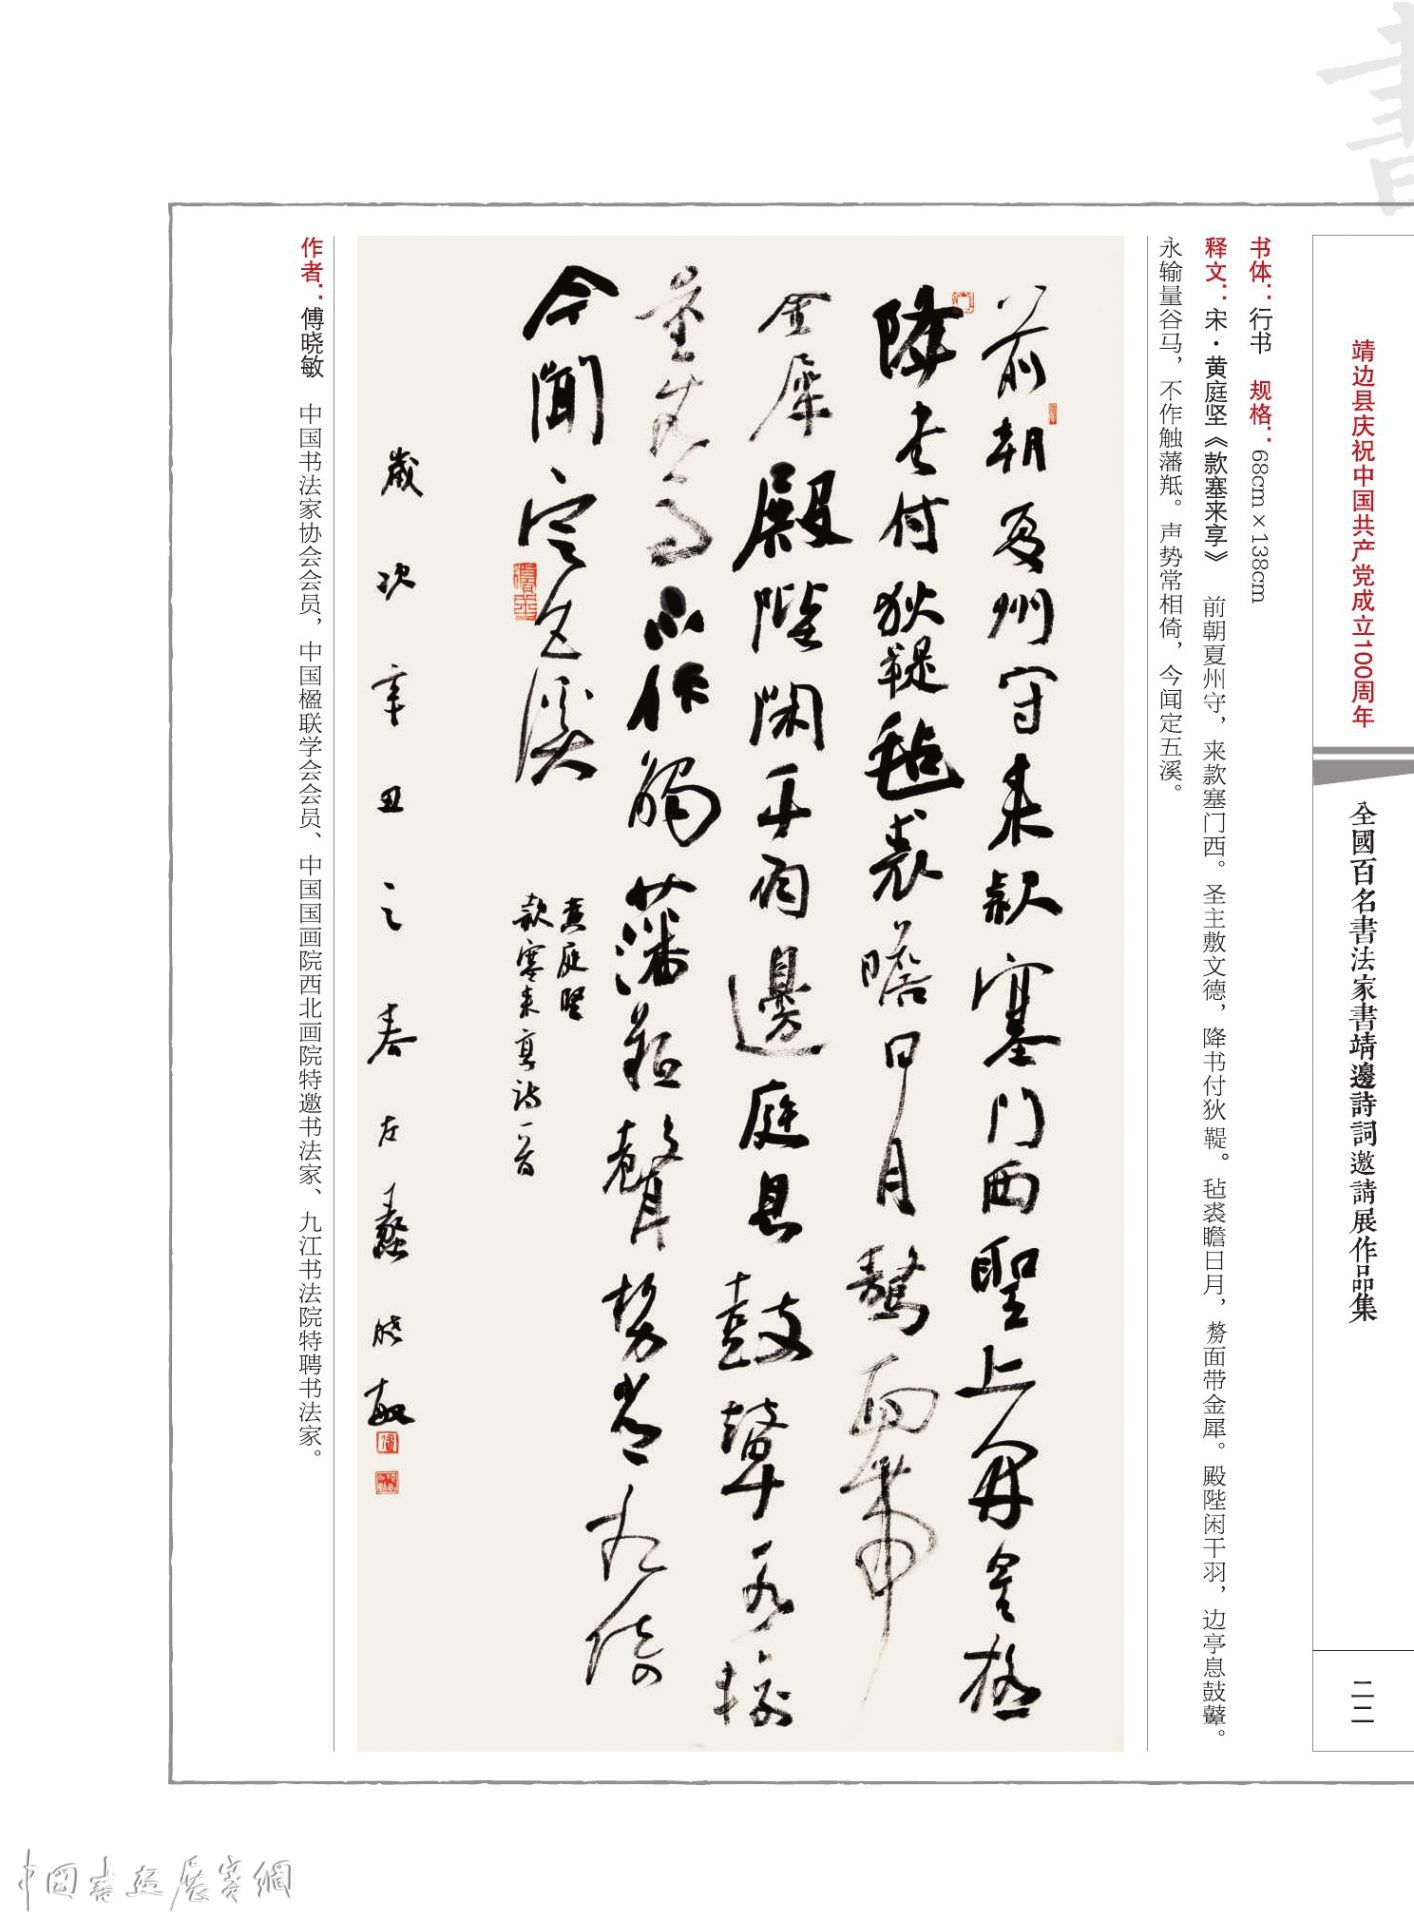 靖边县庆祝中国共产党成立100周年
全國百名書法家書靖邊詩詞邀請展作品集
二二
书体：行书　规格：68cm×138cm
释文：宋·黄庭坚《款塞来享》　前朝夏州守，来款塞门西。圣主敷文德，降书付狄鞮。毡裘瞻日月，剺面带金犀。殿陛闲干羽，边亭息鼓鼙。
永输量谷马，不作触藩羝。声势常相倚，今闻定五溪。
前朝夏州守来款塞门西聖
降書付狄鞮毡裘瞻日月剺面帶
金犀殿陛閑干羽邊庭息鼓鼙永輸
量谷馬不作觸藩羝聲勢常相倚
今聞定五溪
黄庭堅
款塞来享詩一首
歲次辛丑之春左蠡曉敏
作者：傅晓敏　中国书法家协会会员，中国楹联学会会员、中国国画院西北画院特邀书法家、九江书法院特聘书法家。
中國書画展賽網
書